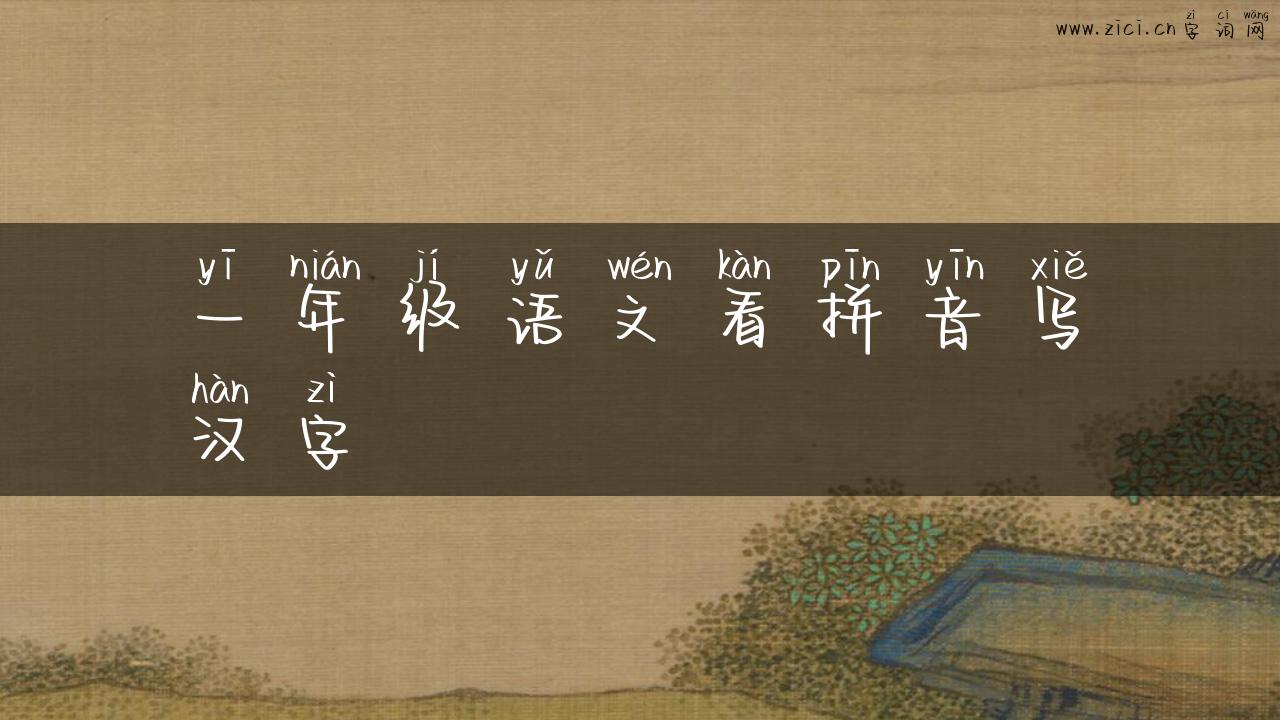 zì cí wǎng
www.zici.cn 字 词 网
yī nián jí yǔ wén kàn pīn yīn xiě
一 年 级 语 文 看 拼 音 写
hàn zì
汉 字